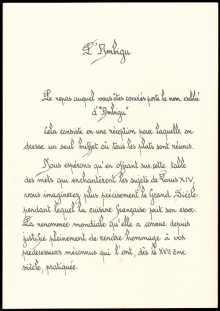 L'Ambigu
Le repas auquel vous êtes conviés porte le nom oublié
d'"Ambigu"
Cela consiste en une réception pour laquelle on
dresse un seul buffet où tous les plats sont réunis.
Nous espérons qu'en offrant sur cette table
des mets qui enchantèrent les sujets de Louis XIV,
vous imaginerez plus précisément le Grand Siècle
pendant lequel la cuisine Française prit son essor.
La renommée mondiale qu'elle a connue depuis
justifie pleinement de rendre hommage à vos
prédécesseurs méconnus qui l'ont, dès le XVII ème
siècle, pratiquée.